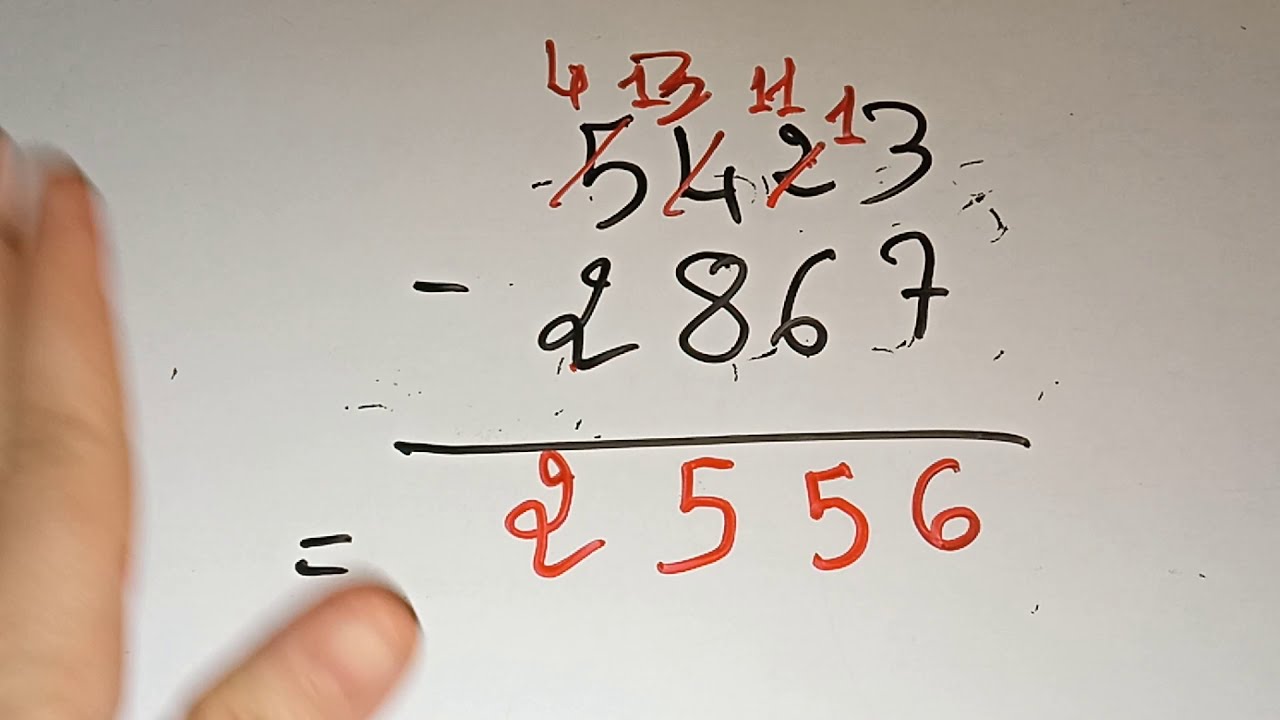 4 13 11 1
5 4 2 3
- 2 8 6 7
= 2 5 5 6